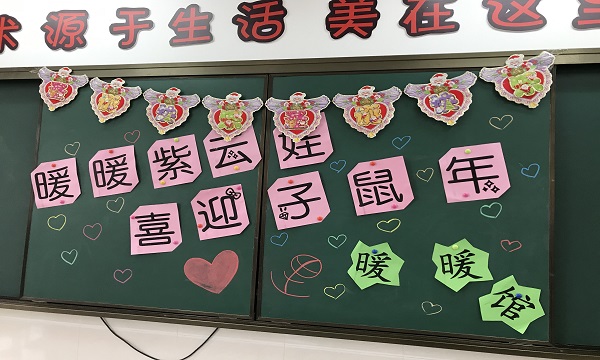 术源于生活 美在这
暖暖紫云娃
喜迎子鼠年
暖暖馆